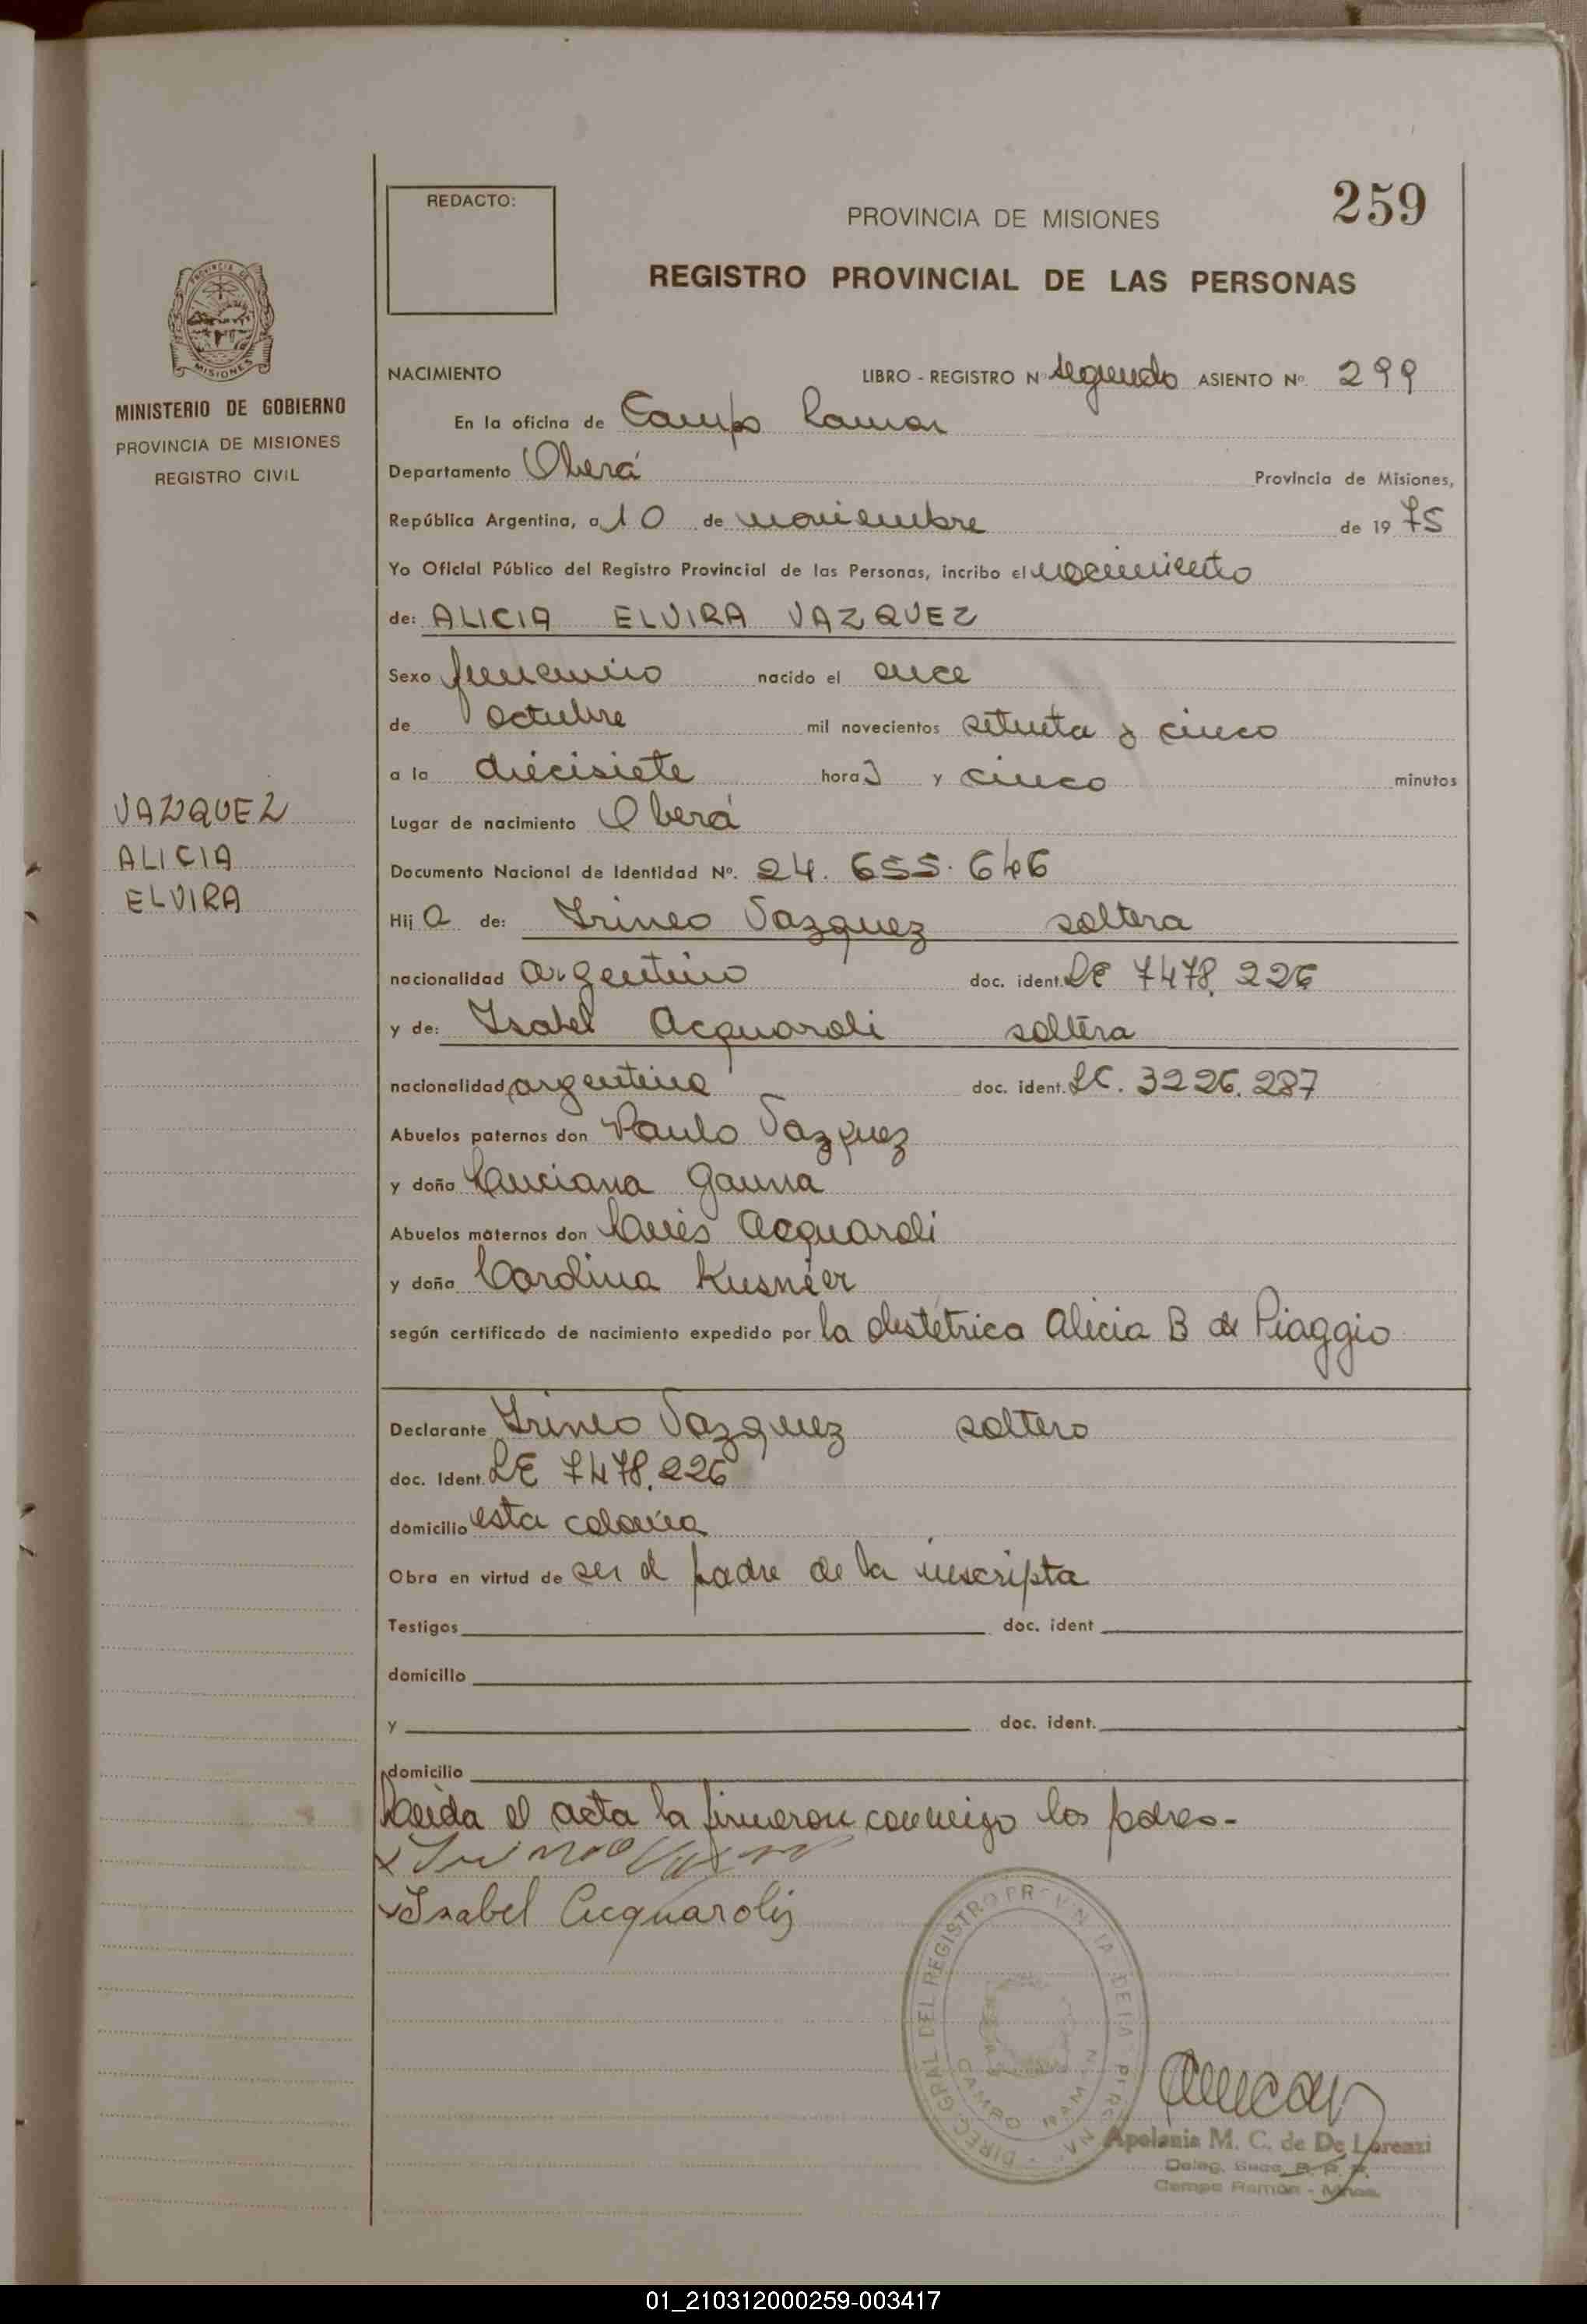 259
REDACTO:
PROVINCIA DE MISIONES
REGISTRO PROVINCIAL DE LAS PERSONAS
MISIONES
MINISTERIO DE GOBIERNO
PROVINCIA DE MISIONES
REGISTRO CIVIL
VAZQUEZ
ALICIA
ELVIRA
NACIMIENTO LIBRO - REGISTRO Nº segundo ASIENTO Nº. 299
En la oficina de Campo Ramon
Departamento Oberá Provincia de Misiones,
República Argentina, a 10 de noviembre de 1975
Yo Oficial Público del Registro Provincial de las Personas, incribo el nacimiento
de: ALICIA ELVIRA VAZQUEZ
Sexo femenino nacido el once
de octubre mil novecientos setenta y cinco
a la diecisiete horas y cinco minutos
Lugar de nacimiento Oberá
Documento Nacional de Identidad Nº. 24.655.646
Hija de: Irineo Vazquez soltera
nacionalidad argentino doc. ident. LE 7478.226
y de: Isabel Acquaroli soltera
nacionalidad argentina doc. ident. LC. 3226.287
Abuelos paternos don Paulo Vazquez
y doña Luciana Gauna
Abuelos maternos don Luis Acquaroli
y doña Carolina Kusnier
según certificado de nacimiento expedido por la obstétrica Alicia B de Piaggio
Declarante Irineo Vazquez soltero
doc. Ident. LE 7478.226
domicilio esta colonia
Obra en virtud de ser el padre de la inscripta
Testigos doc. ident
domicilio
y doc. ident.
domicilio
Leida el acta la firmaron conmigo los padres.-
Isabel Acquaroli
DIREC. GRAL. DEL REGISTRO PROVINCIAL DE LA PERSONA
CAMPO RAMON
Apolonia M. C. de De Lorenzi
Campo Ramón - Mnes.
01_210312000259-003417